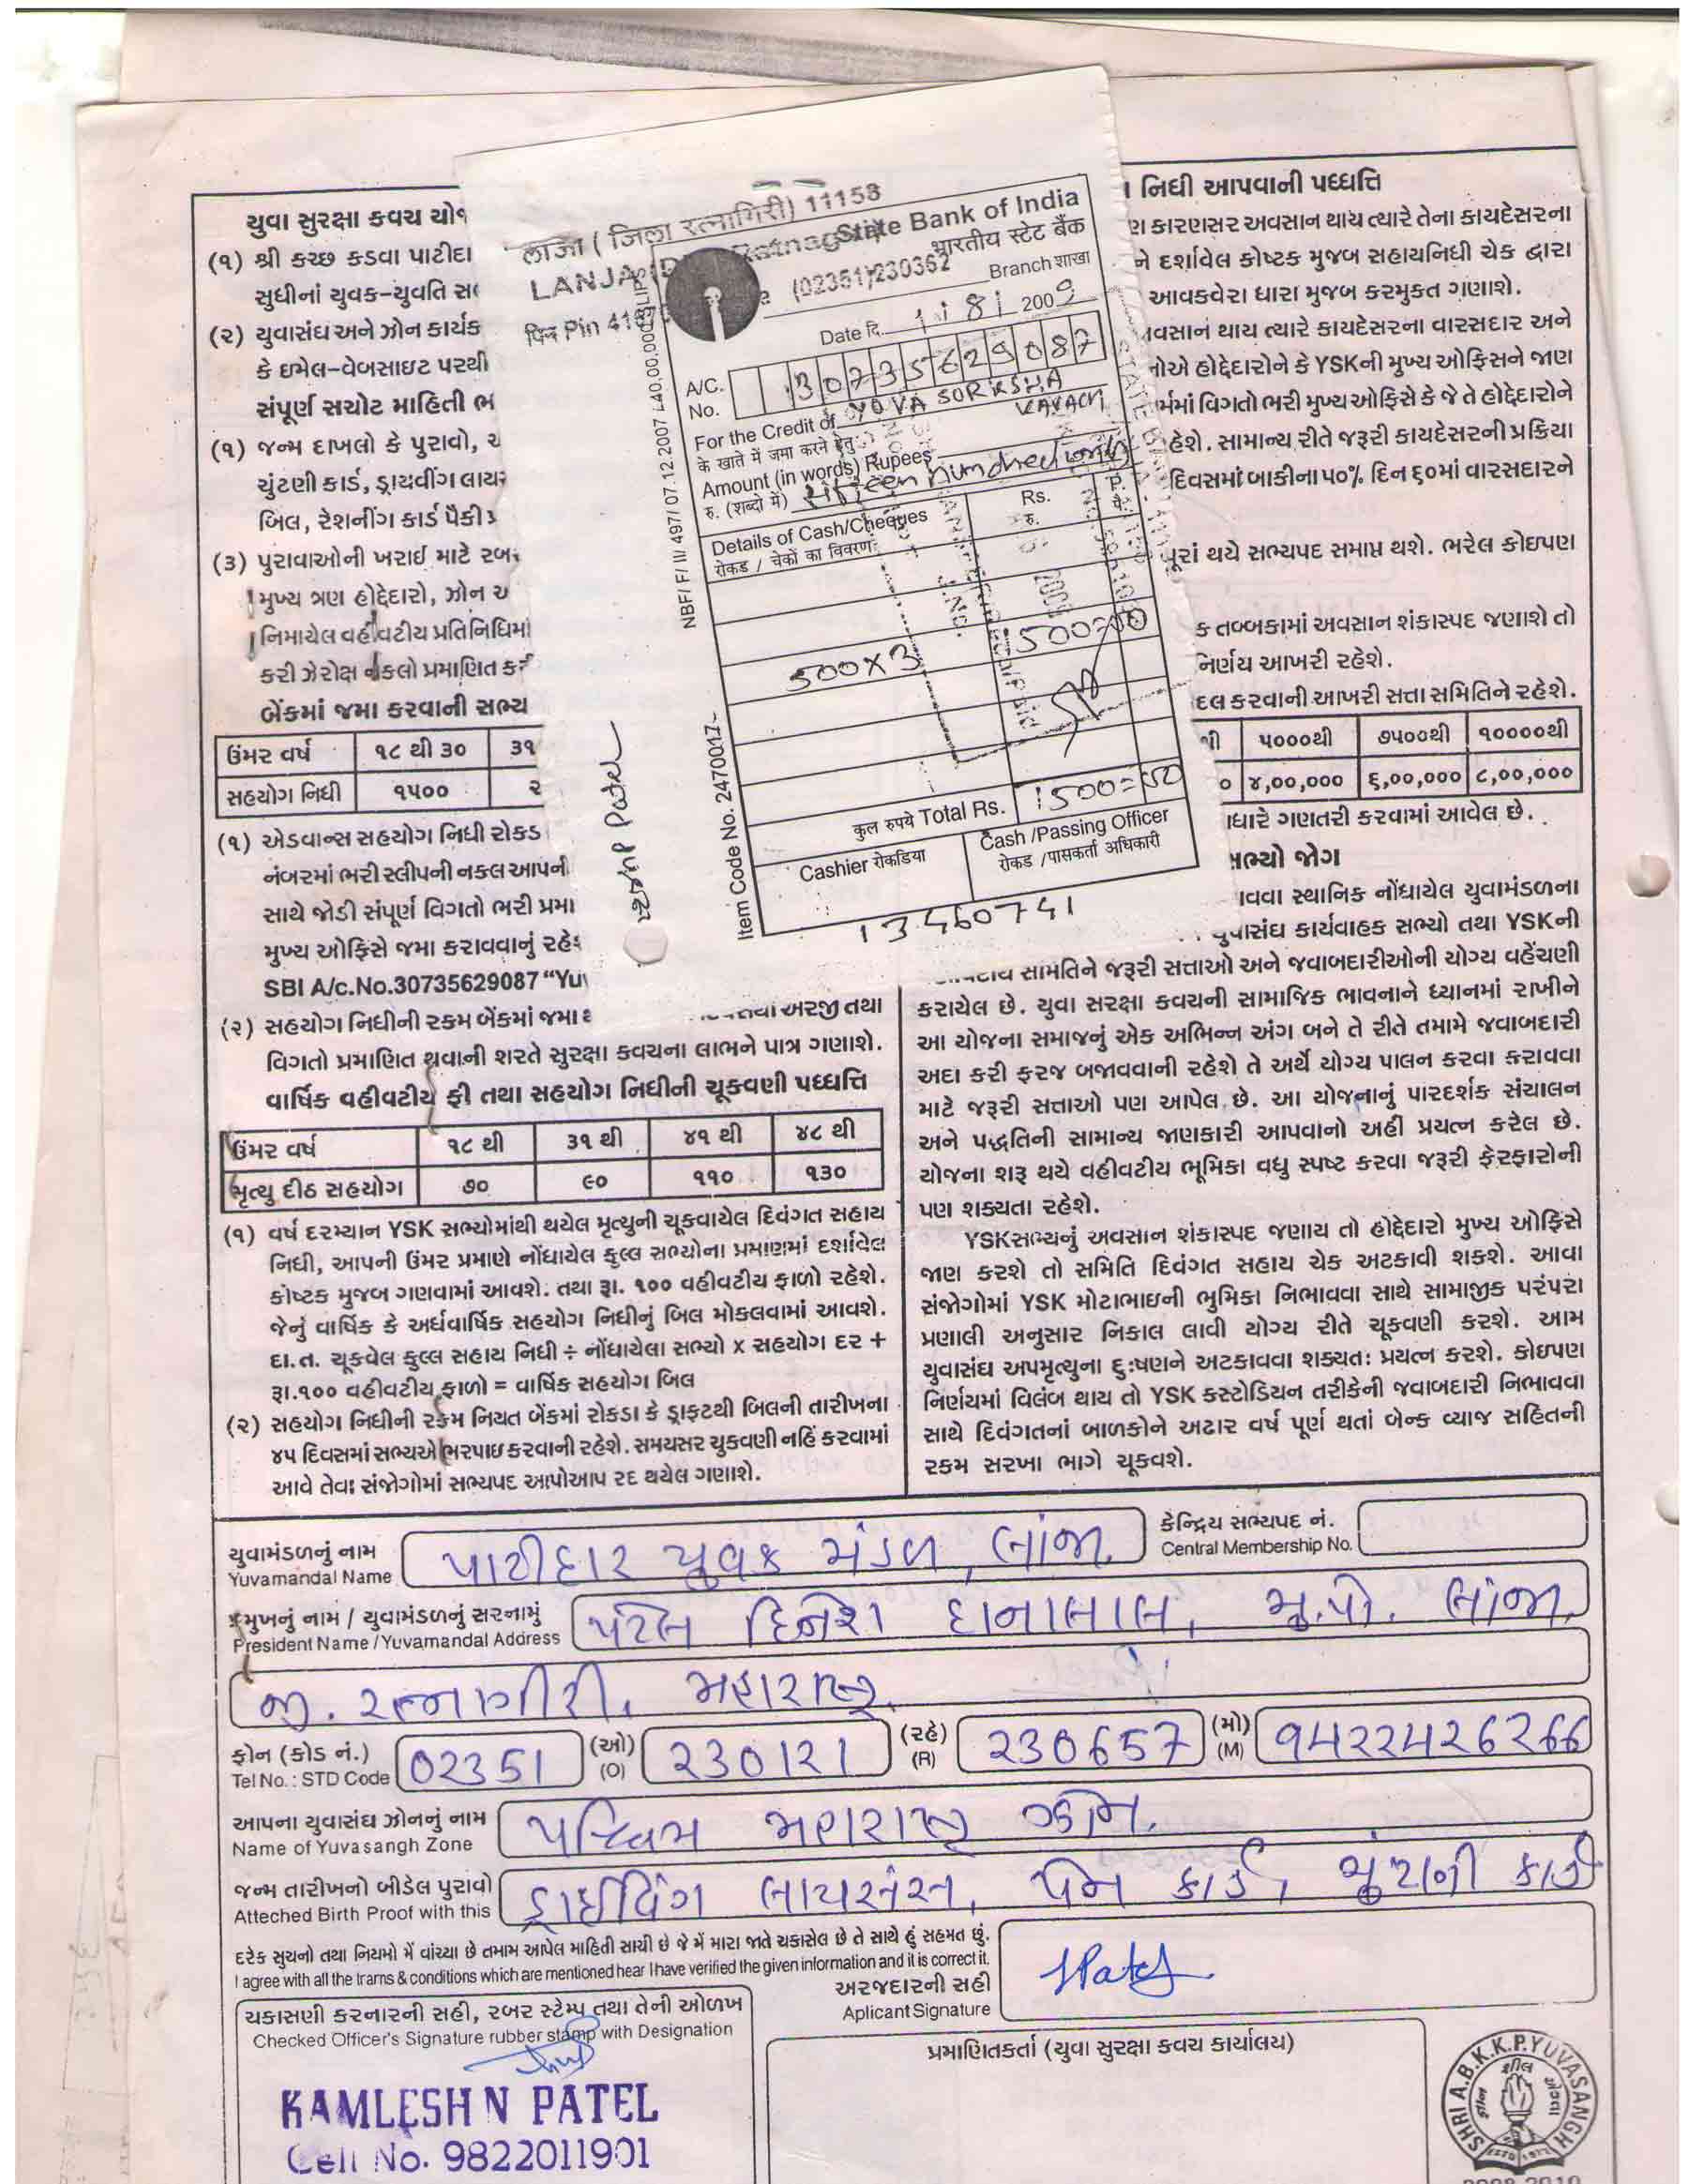 યુવા સુરક્ષા કવચ
(૧) શ્રી કચ્છ કડવા પાટીદા
સુધીનાં યુવક-યુવતિ
(૨) યુવાસંઘ અને ઝોન કાર્યક
કે ઇમેલ-વેબસાઇટ પરથી
સંપૂર્ણ સચોટ માહિતી ભ
(૧) જન્મ દાખલો કે પુરાવો,
ચુંટણી કાર્ડ, ડ્રાયવીંગ લાય
બિલ, રેશનીંગ કાર્ડ પૈકી
(૩) પુરાવાઓની ખરાઈ માટે
મુખ્ય ત્રણ હોદ્દેદારો, ઝોન
નિમાયેલ વહીવટીય પ્રતિનિધિમાં
કરી ઝેરોક્ષ નકલો પ્રમાણિત
બેંકમાં જમા કરવાની સભ્ય
ઉંમર વર્ષ ૧૮ થી ૩૦ ૩૧
સહયોગ નિધી ૧૫૦૦ ૨
(૧) એડવાન્સ સહયોગ નિધી રોકડ
નંબરમાં ભરી સ્લીપની નકલ આપની
સાથે જોડી સંપૂર્ણ વિગતો ભરી પ્રમા
મુખ્ય ઓફિસે જમા કરાવવાનું
SBI A/c.No.30735629087 "Yu
(૨) સહયોગ નિધીની રકમ બેંકમાં જમા અરજી તથા
વિગતો પ્રમાણિત થવાની શરતે સુરક્ષા કવચના લાભને પાત્ર ગણાશે.
વાર્ષિક વહીવટીય ફી તથા સહયોગ નિધીની ચૂકવણી પધ્ધતિ
ઉંમર વર્ષ ૧૮ થી ૩૧ થી ૪૧ થી ૪૮ થી
મૃત્યુ દીઠ સહયોગ ૭૦ ૯૦ ૧૧૦ ૧૩૦
(૧) વર્ષ દરમ્યાન YSK સભ્યોમાંથી થયેલ મૃત્યુની ચૂકવાયેલ દિવંગત સહાય
નિધી, આપની ઉંમર પ્રમાણે નોંધાયેલ કુલ્લ સભ્યોના પ્રમાણમાં દર્શાવેલ
કોષ્ટક મુજબ ગણવામાં આવશે. તથા રૂા. ૧૦૦ વહીવટીય ફાળો રહેશે.
જેનું વાર્ષિક કે અર્ધવાર્ષિક સહયોગ નિધીનું બિલ મોકલવામાં આવશે.
દા.ત. ચૂકવેલ કુલ્લ સહાય નિધી ÷ નોંધાયેલા સભ્યો x સહયોગ દર +
રૂા.૧૦૦ વહીવટીય ફાળો = વાર્ષિક સહયોગ બિલ
(૨) સહયોગ નિધીની રકમ નિયત બેંકમાં રોકડા કે ડ્રાફટથી બિલની તારીખના
૪૫ દિવસમાં સભ્યએ ભરપાઇ કરવાની રહેશે. સમયસર ચુકવણી નહિં કરવામાં
આવે તેવા સંજોગોમાં સભ્યપદ આપોઆપ રદ થયેલ ગણાશે.
लांजा ( जिला रत्नागिरी) 11153
LANJA Ratnagiri
State Bank of India
भारतीय स्टेट बैंक
(02351)230362
पिन Pin
Branch शाखा
Date दि. 1 8 2009
A/C. No. 30735629087
For the Credit of YOVA SORKSHA
के खाते में जमा करने हेतु KAVACH
Amount (in words) Rupees
रु. (शब्दो में) fifteen hundred only
Details of Cash/Cheques Rs. P.
रोकड / चेकों का विवरण रु. पै.
500x3 1500=00
कुल रुपये Total Rs. 1500=00
Cashier रोकडिया
Cash /Passing Officer
रोकड /पासकर्ता अधिकारी
13460741
NBF/ F/ II/ 497/ 07.12.2007
Item Code No. 2470017
Patel
નિધી આપવાની પધ્ધતિ
કારણસર અવસાન થાય ત્યારે તેના કાયદેસરના
ને દર્શાવેલ કોષ્ટક મુજબ સહાયનિધી ચેક દ્વારા
આવકવેરા ધારા મુજબ કરમુક્ત ગણાશે.
વસાન થાય ત્યારે કાયદેસરના વારસદાર અને
નોએ હોદ્દેદારોને કે YSKની મુખ્ય ઓફિસને જાણ
ર્મમાં વિગતો ભરી મુખ્ય ઓફિસે કે જે તે હોદ્દેદારોને
હેશે. સામાન્ય રીતે જરૂરી કાયદેસરની પ્રક્રિયા
દિવસમાં બાકીના ૫૦% દિન ૬૦માં વારસદારને
પૂરાં થયે સભ્યપદ સમાપ્ત થશે. ભરેલ કોઇપણ
ક તબ્બકામાં અવસાન શંકાસ્પદ જણાશે તો
નિર્ણય આખરી રહેશે.
દલ કરવાની આખરી સત્તા સમિતિને રહેશે.
થી ૫૦૦૦થી ૭૫૦૦થી ૧૦૦૦૦થી
૦ ૪,૦૦,૦૦૦ ૬,૦૦,૦૦૦ ૮,૦૦,૦૦૦
ધારે ગણતરી કરવામાં આવેલ છે.
સભ્યો જોગ
ાવવા સ્થાનિક નોંધાયેલ યુવામંડળના
યુવાસંઘ કાર્યવાહક સભ્યો તથા YSKની
સમિતિને જરૂરી સત્તાઓ અને જવાબદારીઓની યોગ્ય વહેંચણી
કરાયેલ છે. યુવા સરક્ષા કવચની સામાજિક ભાવનાને ધ્યાનમાં રાખીને
આ યોજના સમાજનું એક અભિન્ન અંગ બને તે રીતે તમામે જવાબદારી
અદા કરી ફરજ બજાવવાની રહેશે તે અર્થે યોગ્ય પાલન કરવા કરાવવા
માટે જરૂરી સત્તાઓ પણ આપેલ છે. આ યોજનાનું પારદર્શક સંચાલન
અને પદ્ધતિની સામાન્ય જાણકારી આપવાનો અહીં પ્રયત્ન કરેલ છે.
યોજના શરૂ થયે વહીવટીય ભૂમિકા વધુ સ્પષ્ટ કરવા જરૂરી ફેરફારોની
પણ શક્યતા રહેશે.
YSKસભ્યનું અવસાન શંકાસ્પદ જણાય તો હોદ્દેદારો મુખ્ય ઓફિસે
જાણ કરશે તો સમિતિ દિવંગત સહાય ચેક અટકાવી શકશે. આવા
સંજોગોમાં YSK મોટાભાઇની ભુમિકા નિભાવવા સાથે સામાજીક પરંપરા
પ્રણાલી અનુસાર નિકાલ લાવી યોગ્ય રીતે ચૂકવણી કરશે. આમ
યુવાસંઘ અપમૃત્યુના દુઃષણને અટકાવવા શક્યતઃ પ્રયત્ન કરશે. કોઇપણ
નિર્ણયમાં વિલંબ થાય તો YSK કસ્ટોડિયન તરીકેની જવાબદારી નિભાવવા
સાથે દિવંગતનાં બાળકોને અઢાર વર્ષ પૂર્ણ થતાં બેન્ક વ્યાજ સહિતની
રકમ સરખા ભાગે ચૂકવશે.
યુવામંડળનું નામ પાટીદાર યુવક મંડળ, લાંજા. કેન્દ્રિય સભ્યપદ નં.
Yuvamandal Name Central Membership No.
પ્રમુખનું નામ / યુવામંડળનું સરનામું પટેલ દિનેશ દાનાલાલ, મુ.પો. લાંજા,
President Name / Yuvamandal Address
જી. રત્નાગીરી, મહારાષ્ટ્ર.
ફોન (કોડ નં.) 02351 (ઓ) 230121 (રહે) 230657 (મો) 9422426266
Tel No.: STD Code (O) (R) (M)
આપના યુવાસંઘ ઝોનનું નામ પશ્ચિમ મહારાષ્ટ્ર ઝોન.
Name of Yuvasangh Zone
જન્મ તારીખનો બીડેલ પુરાવો ડ્રાઈવિંગ લાયસંસ, પેન કાર્ડ, ચુંટાની કાર્ડ
Atteched Birth Proof with this
દરેક સુચનો તથા નિયમો મેં વાંચ્યા છે તમામ આપેલ માહિતી સાચી છે જે મેં મારા જાતે ચકાસેલ છે તે સાથે હું સહમત છું.
I agree with all the trams & conditions which are mentioned hear I have verified the given information and it is correct it.
અરજદારની સહી
Aplicant Signature
ચકાસણી કરનારની સહી, રબર સ્ટેમ્પ તથા તેની ઓળખ
Checked Officer's Signature rubber stamp with Designation
KAMLESH N PATEL
Cell No. 9822011901
પ્રમાણિતકર્તા (યુવા સુરક્ષા કવચ કાર્યાલય)
SHRI A.B.K.K.P. YUVASANGH